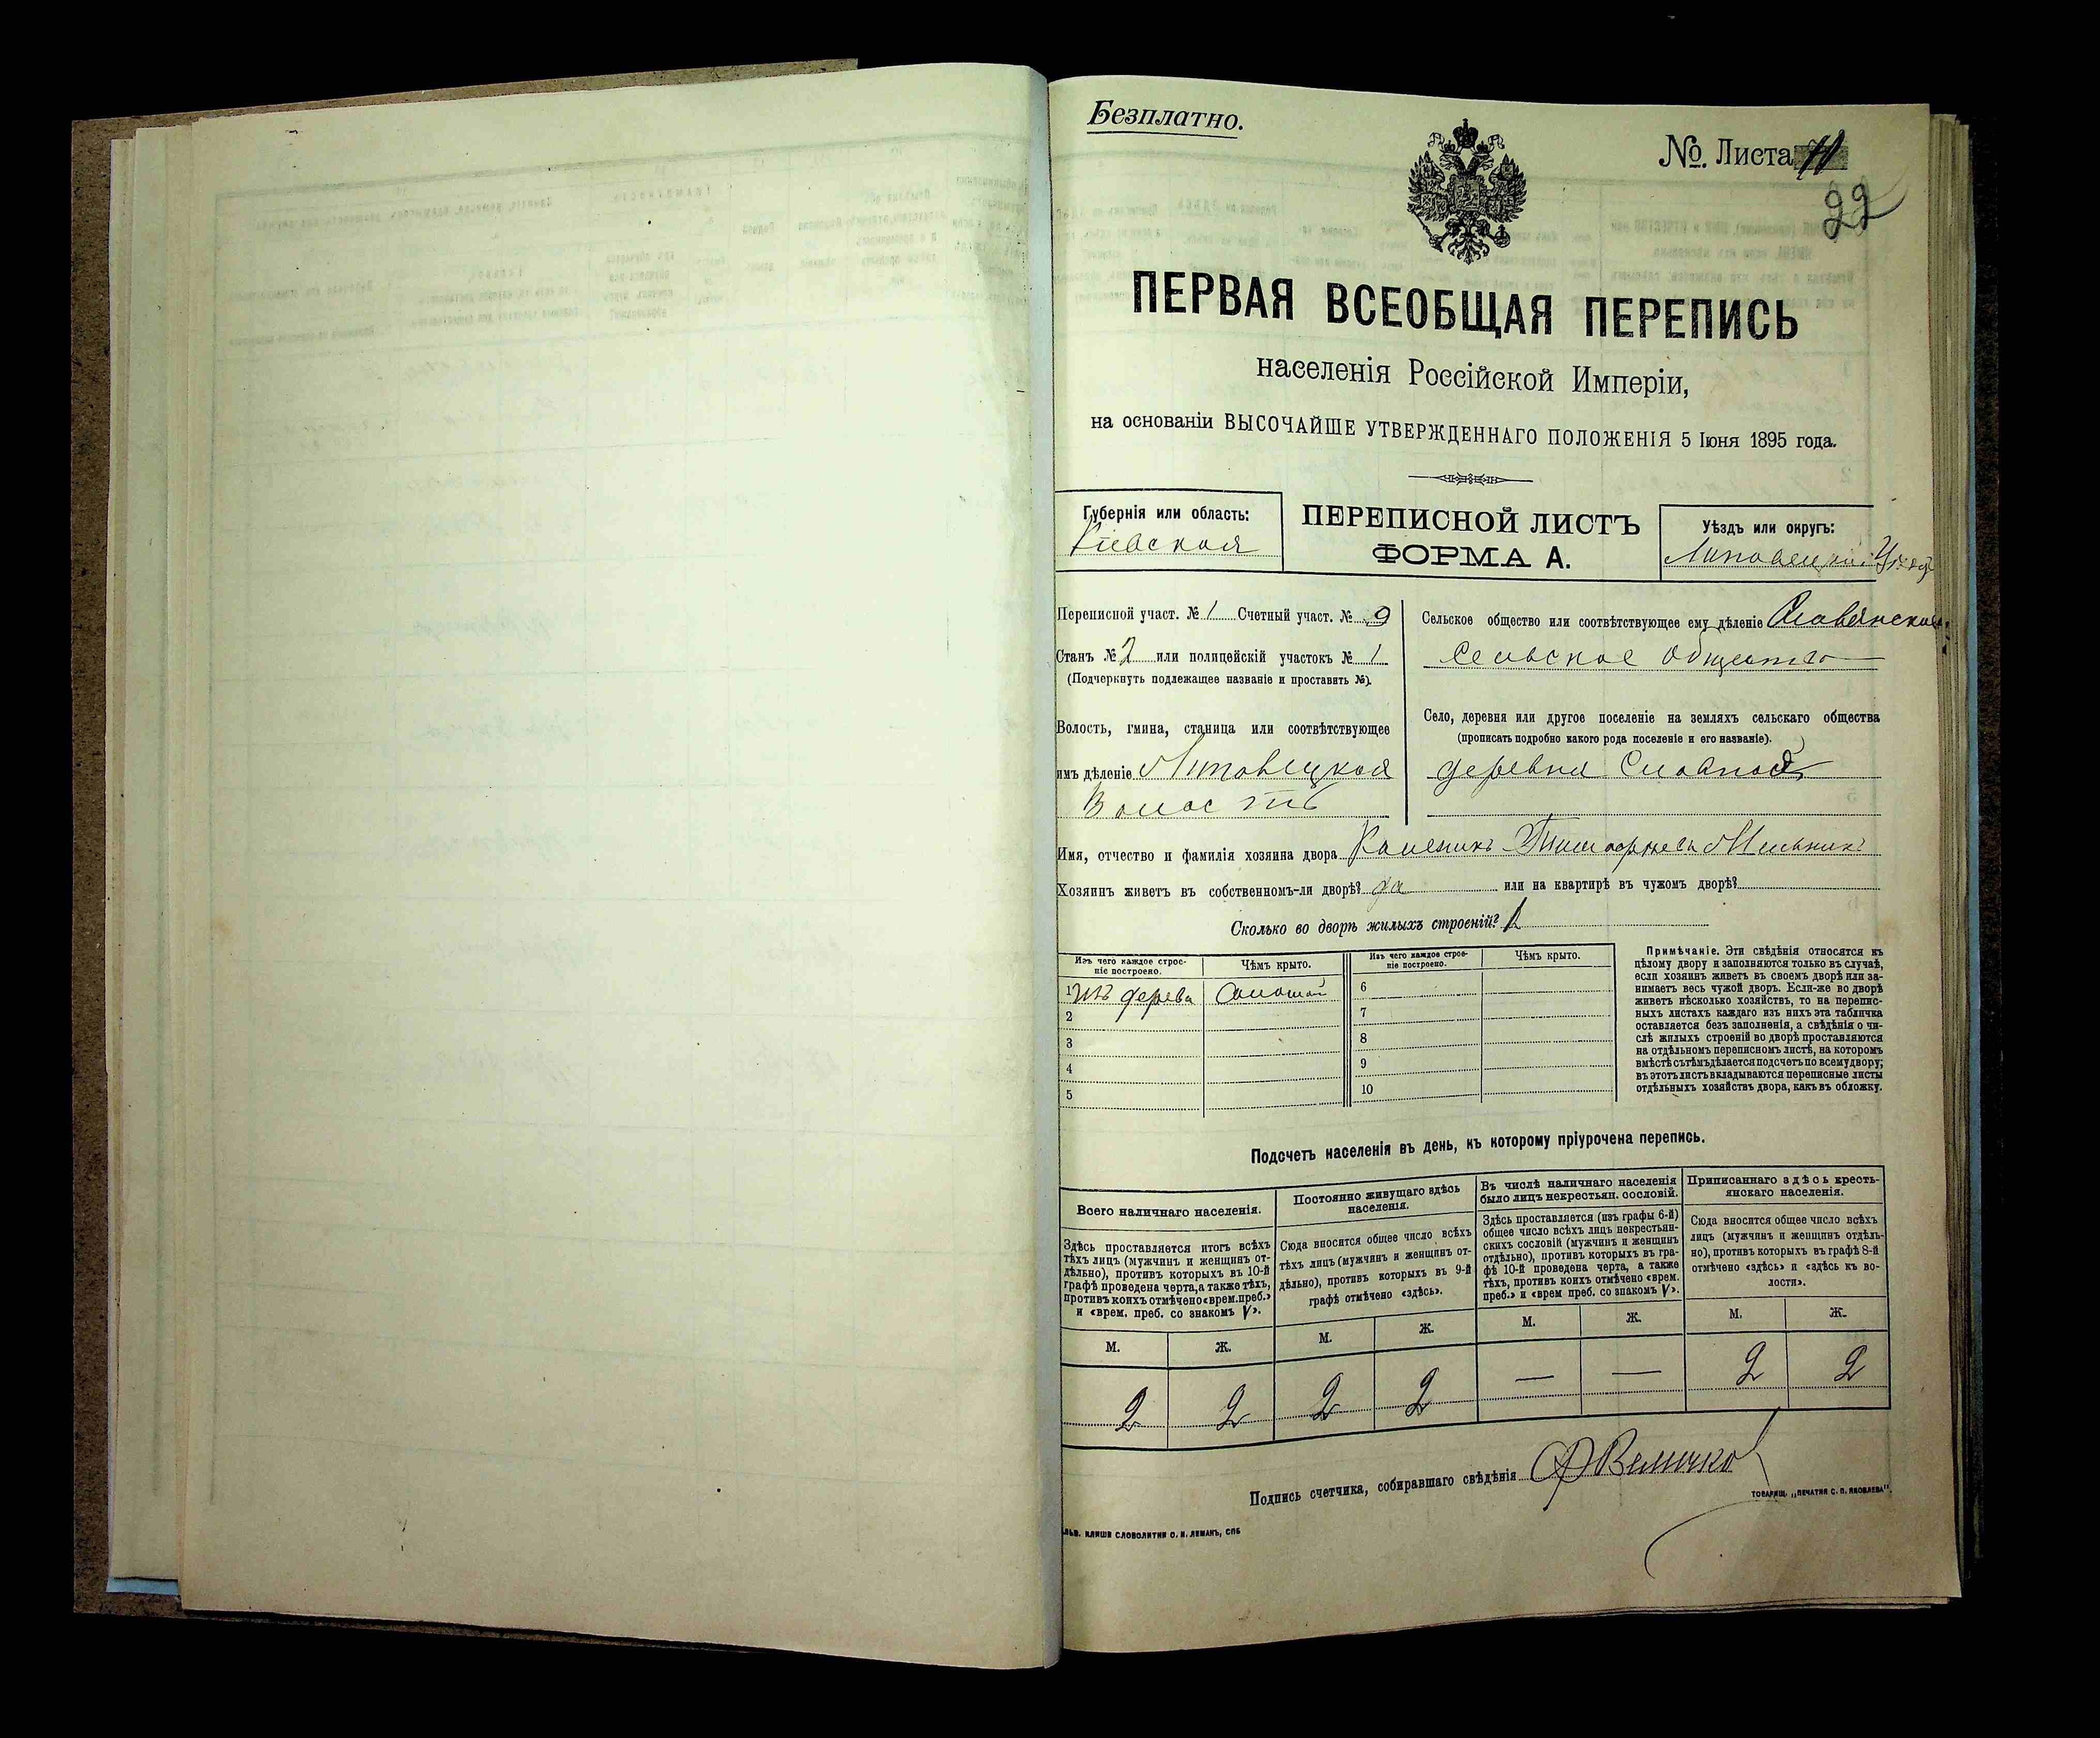 Безплатно.
№ Листа 11
22
ПЕРВАЯ ВСЕОБЩАЯ ПЕРЕПИСЬ
населенія Россійской Имперіи,
на основаніи ВЫСОЧАЙШЕ УТВЕРЖДЕННАГО ПОЛОЖЕНІЯ 5 Іюня 1895 года.
Губернія или область:
Кіевская
ПЕРЕПИСНОЙ ЛИСТЪ
ФОРМА А.
Уѣздъ или округъ:
Липовецкій Уѣздъ
Переписной участ. № 1 Счетный участ. № 9
Станъ № 2 или полицейскій участокъ № 1
(Подчеркнуть подлежащее названіе и проставить №).
Волость, гмина, станица или соотвѣтствующее
имъ дѣленіе Липовецкая
Волость
Сельское общество или соотвѣтствующее ему дѣленіе
Сельское Общество
Село, деревня или другое поселеніе на земляхъ сельскаго общества
(прописать подробно какого рода поселеніе и его названіе).
деревня
Имя, отчество и фамилія хозяина двора Мельникъ
Хозяинъ живетъ въ собственномъ-ли дворѣ? да или на квартирѣ въ чужомъ дворѣ?
Сколько во дворѣ жилыхъ строеній? 1
Изъ чего каждое строе-
ніе построено.
Чѣмъ крыто.
Изъ чего каждое строе-
ніе построено.
Чѣмъ крыто.
1 изъ дерева Соломой
2
3
4
5
6
7
8
9
10
Примѣчаніе. Эти свѣдѣнія относятся къ
цѣлому двору и заполняются только въ случаѣ,
если хозяинъ живетъ въ своемъ дворѣ или за-
нимаетъ весь чужой дворъ. Если-же во дворѣ
живетъ нѣсколько хозяйствъ, то на перепис-
ныхъ листахъ каждаго изъ нихъ эта табличка
оставляется безъ заполненія, а свѣдѣнія о чи-
слѣ жилыхъ строеній во дворѣ проставляются
на отдѣльномъ переписномъ листѣ, на которомъ
вмѣстѣ съ тѣмъ дѣлается подсчетъ по всему двору;
въ этотъ листъ вкладываются переписные листы
отдѣльныхъ хозяйствъ двора, какъ въ обложку.
Подсчетъ населенія въ день, къ которому пріурочена перепись.
Всего наличнаго населенія.
Здѣсь проставляется итогъ всѣхъ
тѣхъ лицъ (мужчинъ и женщинъ от-
дѣльно), противъ которыхъ въ 10-й
графѣ проведена черта, а также тѣхъ,
противъ коихъ отмѣчено «врем. преб.»
и «врем. преб. со знакомъ V».
Постоянно живущаго здѣсь
населенія.
Сюда вносится общее число всѣхъ
тѣхъ лицъ (мужчинъ и женщинъ от-
дѣльно), противъ которыхъ въ 9-й
графѣ отмѣчено «здѣсь».
Въ числѣ наличнаго населенія
было лицъ некрестьян. сословій.
Здѣсь проставляется (изъ графы 6-й)
общее число всѣхъ лицъ некрестьян-
скихъ сословій (мужчинъ и женщинъ
отдѣльно), противъ которыхъ въ гра-
фѣ 10-й проведена черта, а также
тѣхъ, противъ коихъ отмѣчено «врем.
преб.» и «врем преб. со знакомъ V».
Приписаннаго здѣсь кресть-
янскаго населенія.
Сюда вносится общее число всѣхъ
лицъ (мужчинъ и женщинъ отдѣль-
но), противъ которыхъ въ графѣ 8-й
отмѣчено «здѣсь» и «здѣсь къ во-
лости».
М. Ж. М. Ж. М. Ж. М. Ж.
2 2 2 2 — — 2 2
Подпись счетчика, собиравшаго свѣдѣнія Величко
ТОВАРИЩ. „ПЕЧАТНЯ С. П. ЯКОВЛЕВА".
КЛИШЕ СЛОВОЛИТНИ О. И. ЛЕМАНЪ, СПБ